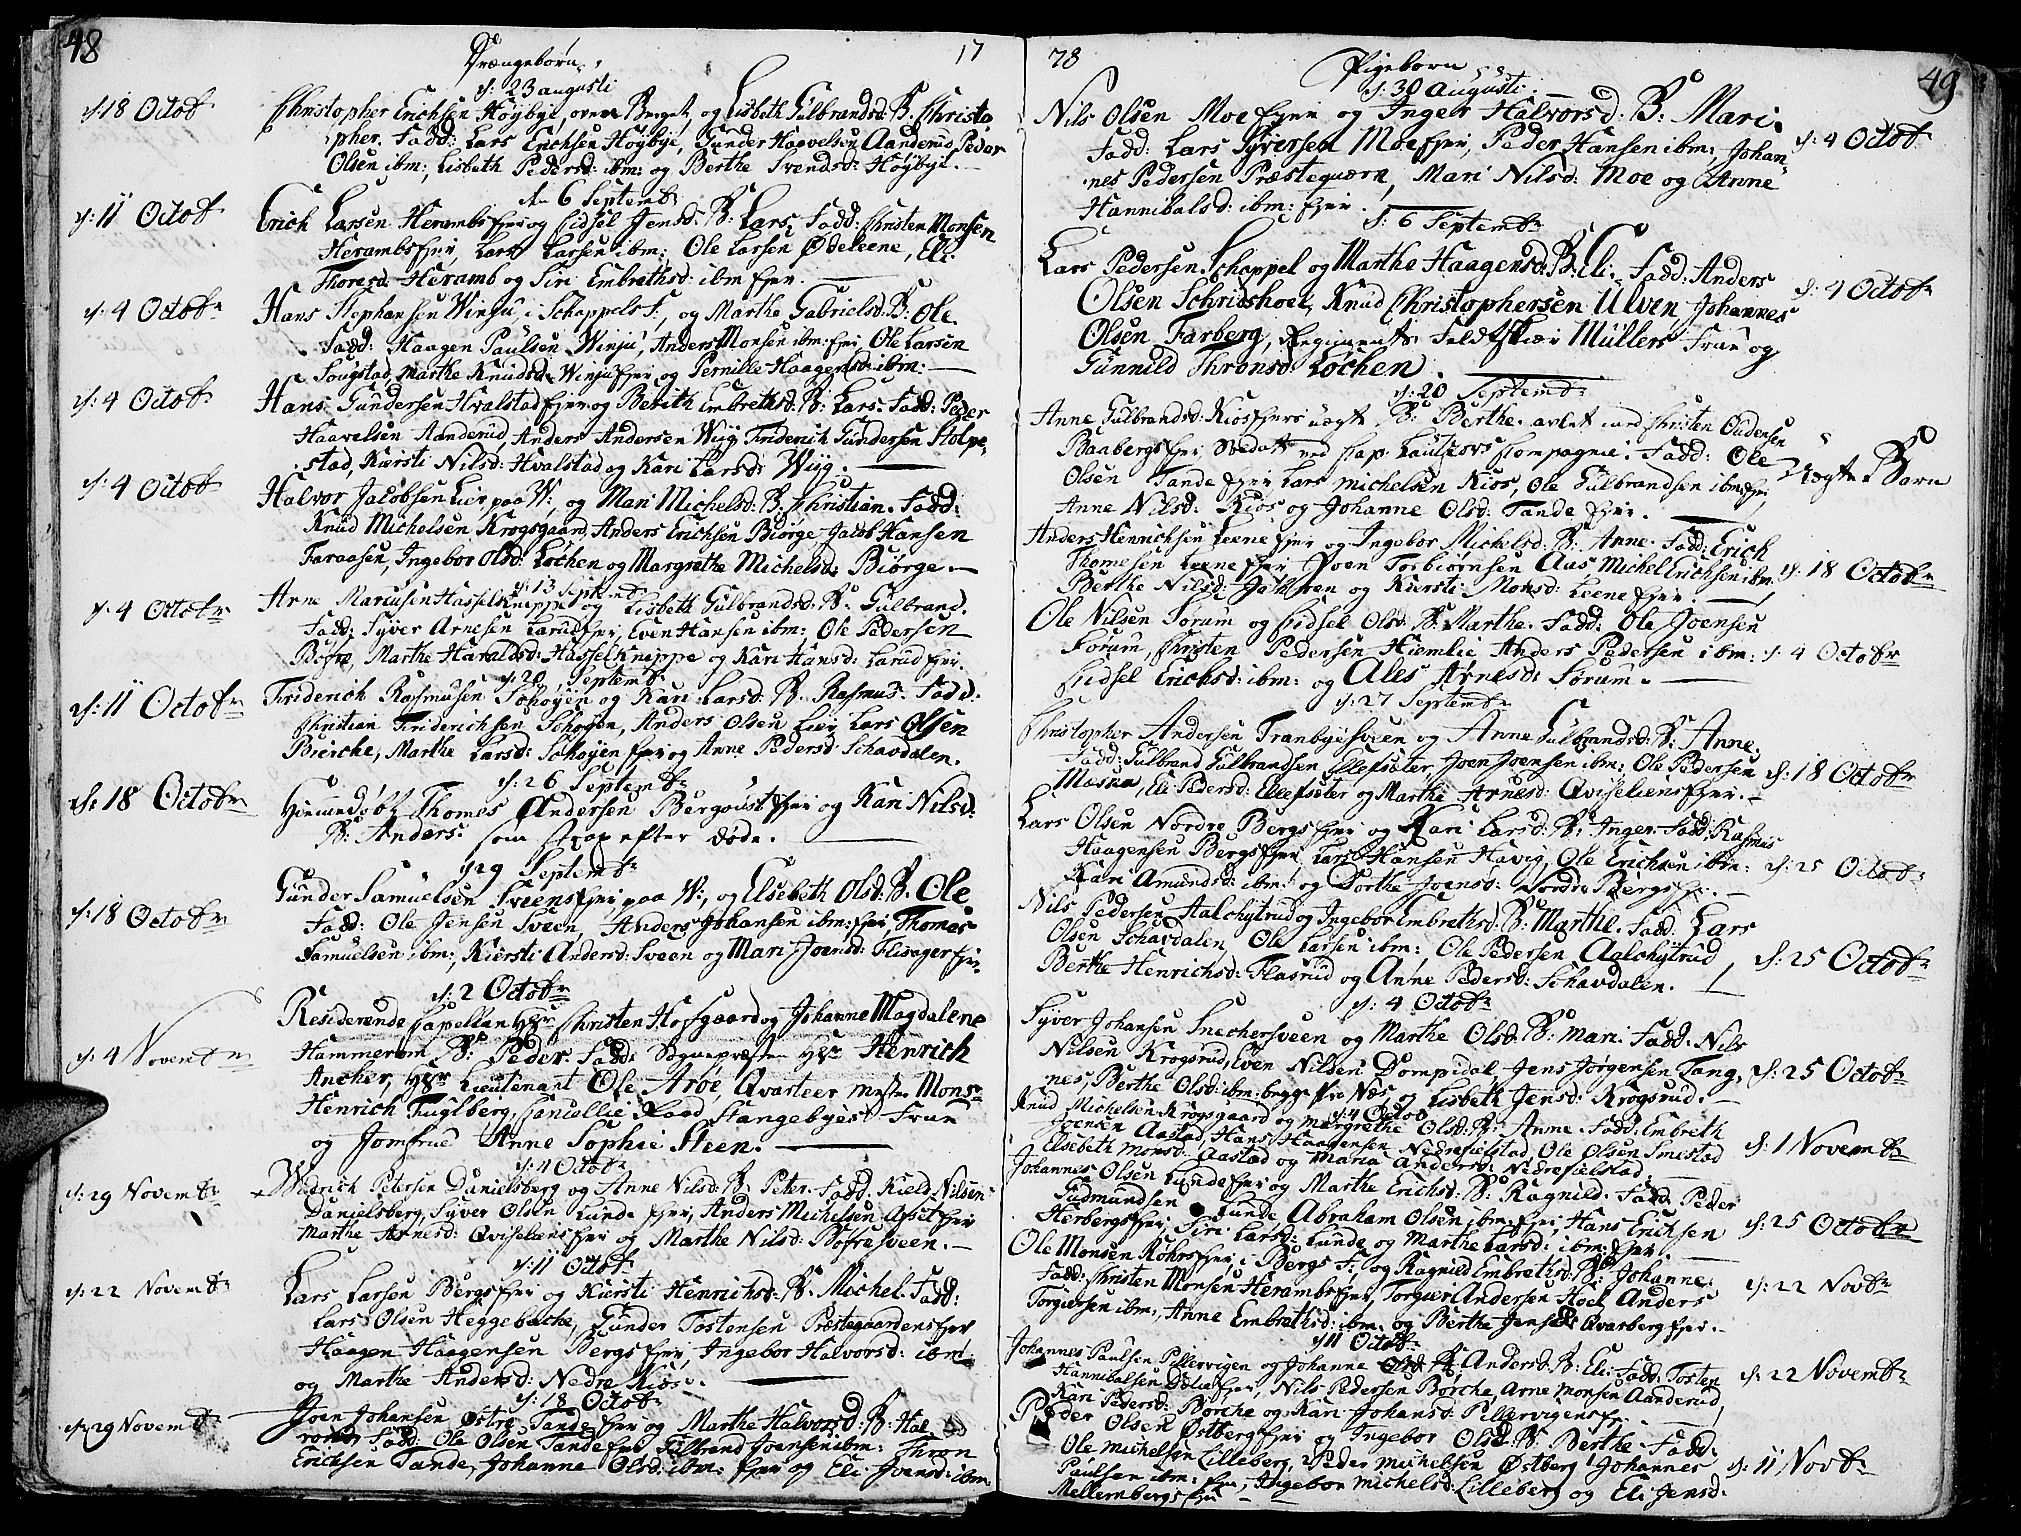 48
Drængebørn
17
d: 23 augusti
d 18 Octobr
Christopher Erichsen Høybye, oven Berget, og Lisbeth Gulbrandsd: B: Christo
pher. Fadd: Lars Erichsen Høybye, Gunder Haavelsen Aanderud, Peder
Olsen ibm:, Lisbeth Pedersd: ibm: og Berthe Svendsd: Høybye.
den 6 Septembr
d: 11 Octobr
Erich Larsen Herambs Ejer og Sidsel Jensd: B: Lars, Fadd: Christen Monsen
Herambs Ejer, Lars Larsen ibm: Ole Larsen Ødeleene, Eli
Thoresd: Heramb og Siri Embrethsd: ibm Ejer.
d: 4 Octobr
Hans Stephansen Winju, i Schappels F:, og Marthe Gabrielsd: B: Ole.
Fadd: Haagen Paulsen Winju, Anders Monsen ibm: Ejer, Ole Larsen
Sougstad, Marthe Knudsd: Winju Ejer og Pernille Haagensd: ibm:
d: 4 Octobr
Hans Gundersen Hvalstad Ejer og Berith Embrethsd: B: Lars. Fadd: Peder
Haavelsen Aanderud, Anders Andersen Wiig, Friderich Gundersen Stolpe,
stad, Kiersti Nilsd: Hvalstad og Kari Larsd: Wiig.
d: 4 Octobr
Halvor Jacobsen Lier, paa W:, og Mari Michelsd: B: Christian. Fadd:
Knud Michelsen Krogsgaard, Anders Erichsen Biørge, Jacob Hansen
Faraasen, Ingebor Olsd: Løchen og Margrethe Michelsd: Biørge.
d: 13 Septembr
d: 4 Octobr
Arne Marcusen Hasselknippe og Lisbeth Gulbrandsd: B: Gulbrand.
Fadd: Syver Arnesen Larud Ejer, Even Hansen ibm: Ole Pedersen
Bofre, Marthe Haraldsd: Hasselknippe og Kari Hansd: Larud Ejer.
d: 20 Septembr
d: 11 Octobr
Friderich Rasmusen Schøyen og Kari Larsd: B: Rasmus. Fadd:
Christian Friderichsen Schøyen, Anders Olsen Lier, Lars Olsen
Bierche, Marthe Larsd: Schøyen Ejer og Anne Pedersd: Schavdalen.
d: 26 Septembr
d: 18 Octobr
Hiemedøbt Thomes Andersen Bergoust Ejer og Kari Nilsd:
B: Anders. som strax efter døde.
d 29 Septembr
d: 18 Octobr
Gunder Samuelsen Sveens Ejer, paa W:, og Elsebeth Olsd: B: Ole
Fadd: Ole Jensen Sveen, Anders Johansen ibm: Ejer, Thomas
Samuelsen ibm:, Kiersti Andersd: Sveen og Mari Joensd: Flisager Ejer.
d: 2 Octobr
d: 4 Novembr
Residerende Capellan Hr Christen Hofsgaard og Johanne Magdalene
Hammeron B: Peder. Fadd: Sognepræsten Hr Henrich
Ancher, Hr Lieutenant Ole Arøe, Qvarteer mester Monsr
Henrich Fuglberg, Cancellie Raad Stangebyes Frue
og Jomfrue Anne Sophie Steen.
d: 4 Octobr
d: 29 Novembr
Widerich Petersen Danielsberg og Anne Nilsd: B: Peter. Fadd: Kield Nilsen
Danielsberg, Syver Olsen Lunde Ejer, Anders Michelsen Alset Ejer
Marthe Arnesd: Qviseliens Ejer og Marthe Nilsd: Bofresveen.
d: 11 Octobr
d: 22 Novembr
Lars Larsen Bergs Ejer og Kiersti Henrichsd: B: Michel. Fadd:
Lars Olsen Heggebache, Gunder Tostensen Præstegaardens Ejer
Haagen Haagensen Bergs Ejer, Ingebor Halvorsd: ibm:
og Marthe Andersd: Nedre Kios.
d: 18 Octobr
d: 29 Novembr
Joen Johansen Østre Tande Ejer og Marthe Halvorsd: B: Hal
vor. Fadd: Ole Olsen Tande Ejer, Gulbrand Joensen ibm: Thron
Erichsen Tande, Johanne Olsd: ibm: Ejer og Eli Joensd: ibm:
78
Pigebørn
49
d: 30 Augusti
Nils Olsen Moe Ejer og Inger Halvorsd: B: Mari.
d: 4 Octobr
Fadd: Lars Syversen Moe Ejer, Peder Hansen ibm:, Johan
nes Pedersen Præstequærn, Mari Nilsd: Moe og Anne
Hannibalsd: ibm: Ejer.
d: 6 Septembr
Lars Pedersen Schappel og Marthe Haagensd: B: Eli. Fadd: Anders
d: 4 Octobr
Olsen Schridshoel, Knud Christophersen Ulven, Johannes
Olsen Farberg, Regiments Feldtskier Müllers Frue og
Gunnild Thronsd: Løchen.
d: 20 Septembr
Anne Gulbrandsd: Kios Ejers uægte B: Berthe. avlet med Christen Gudensen
Baabergs Ejer, Soldat ved Cap: Lautzovs Compagnie. Fadd: Ole
Uægte Barn
Olsen Tande Ejer, Lars Michelsen Kios, Ole Gulbrandsen ibm: Ejer,
Anne Nilsd: Kios og Johanne Olsd: Tande Ejer.
Anders Henrichsen Leene Ejer og Ingebor Michelsd: B: Anne. Fadd: Erich
Thomesen Leene Ejer, Joen Torbiørnsen Aas, Michel Erichsen ibm:
d: 18 Octobr
Berthe Nilsd: Jøhlren og Kiersti Monsd: Leene Ejer.
Ole Nilsen Sørum og Sidsel Olsd: B: Marthe. Fadd: Ole Joensen
Sørum, Christen Pedersen Hiemlie, Anders Pedersen ibm:
d: 4 Octobr
Sidsel Erichsd: ibm: og Ales Arnesd: Sørum.
d: 27 Septembr
Christopher Andersen Tranbyesveen og Anne Gulbrandsd: B: Anne.
Fadd: Gulbrand Gulbrandsen Ellefsæter, Joen Joensen ibm:, Ole Pedersen
d: 18 Octobr
Mæshum, Eli Pedersd: Ellefsæter og Marthe Arnesd: Qviseliens Ejer.
Lars Olsen Nordre Bergs Ejer og Kari Larsd: B: Inger. Fadd: Rasmus
Haagensen Bergs Ejer, Lars Hansen Havig, Ole Erichsen ibm:
d: 25 Octobr
Kari Amundsd: ibm: og Dorthe Joensd: Nordre Bergs Ejer.
Nils Pedersen Aalchytrud og Ingebor Embrethsd: B: Marthe. Fadd: Lars
Olsen Schavdalen, Ole Larsen ibm:, Ole Pedersen Aalchytrud
d: 25 Octobr
Berthe Henrichsd: Flasrud og Anne Pedersd: Schavdalen.
d: 4 Octobr
Syver Johansen Snechersveen og Marthe Olsd: B: Mari. Fadd: Nils
Nilsen Krogsrud, Even Nilsen Dompidal, Jens Jørgensen Tang,
d: 25 Octobr
nes, Berthe Olsd: ibm: begge fra Næs, og Lisbeth Jensd: Krogsrud.
d: 4 Octob
Knud Michelsen Krogsgaard og Margrethe Olsd: B: Anne. Fadd: Embreth
Joensen Aastad, Hans Haagensen Nedrefielstad, Ole Olsen Smestad
d: 1 Novembr
Elsebeth Monsd: Aastad og Maria Andersd: Nedrefielstad.
Johannes Olsen Lunde Ejer og Marthe Erichsd: B: Ragnild. Fadd: Peder
Gudmundsen Lunde, Abraham Olsen ibm: Ejer, Hans Erichsen
d: 25 Octobr
Herbergs Ejer, Siri Larsd: Lunde og Marthe Larsd: ibm: Ejer.
Ole Monsen Røhrs Ejer, i Bergs F: og Ragnild Embrethsd: B: Johanne.
Fadd: Christen Monsen Herambs Ejer, Torgier Andersen Hoel, Anders
d: 22 Novbr
Torgiersen ibm:, Anne Embrethsd: ibm: og Berthe Jensd: Qvarberg Ejer.
d 11 Octobr
Johannes Paulsen Pillervigen og Johanne Andersd: B: Eli. Fadd: Tosten
Hannibalsen Dælie Ejer, Nils Pedersen Børche, Arne Monsen Aanderud,
d: 22 Novembr
Kari Pedersd: Børche og Kari Johansd: Pillervigens Ejer.
Peder Olsen Østberg Ejer og Ingebor Olsd: B: Berthe. Fadd:
Ole Michelsen Lilleberg, Peder Michelsen Østberg, Johannes
d: 11 Novbr
Paulsen ibm: Ejer, Ingebor Michelsd: Lilleberg og Eli Jensd:
Mellernbergs Ejer